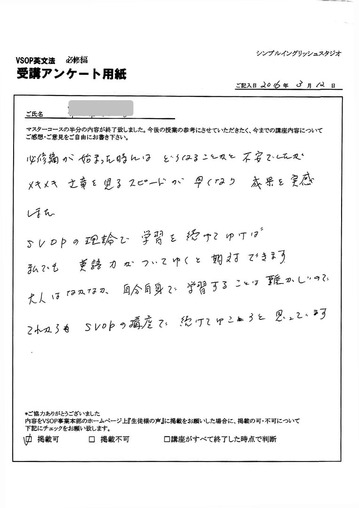 シンプルイングリッシュスタジオ
VSOP英文法 必修編
受講アンケート用紙
ご記入日 2016年 3月12日
ご氏名
マスターコースの半分の内容が終了しました。今後の授業の参考にさせていただきたく、今までの講座内容について
ご感想・ご意見をご自由にお書き下さい。
必修編が始まった時には どうなることかと不安でしたが
メキメキ 文章を見るスピードが 早くなり 成果を実感
しました
SVOPの理論で 学習を続けてゆけば
私でも 英語力がついてゆくと期待できます
大人はなかなか 自分自身で学習することは難かしいので
これからも SVOPの講座で 続けてゆこうと思っています
*ご協力ありがとうございました
内容をVSOP事業本部のホームページ上『生徒様の声』に掲載をお願いした場合に、掲載の可・不可について
下記にチェックをお願い致します。
☑ 掲載可 □ 掲載不可 □講座がすべて終了した時点で判断